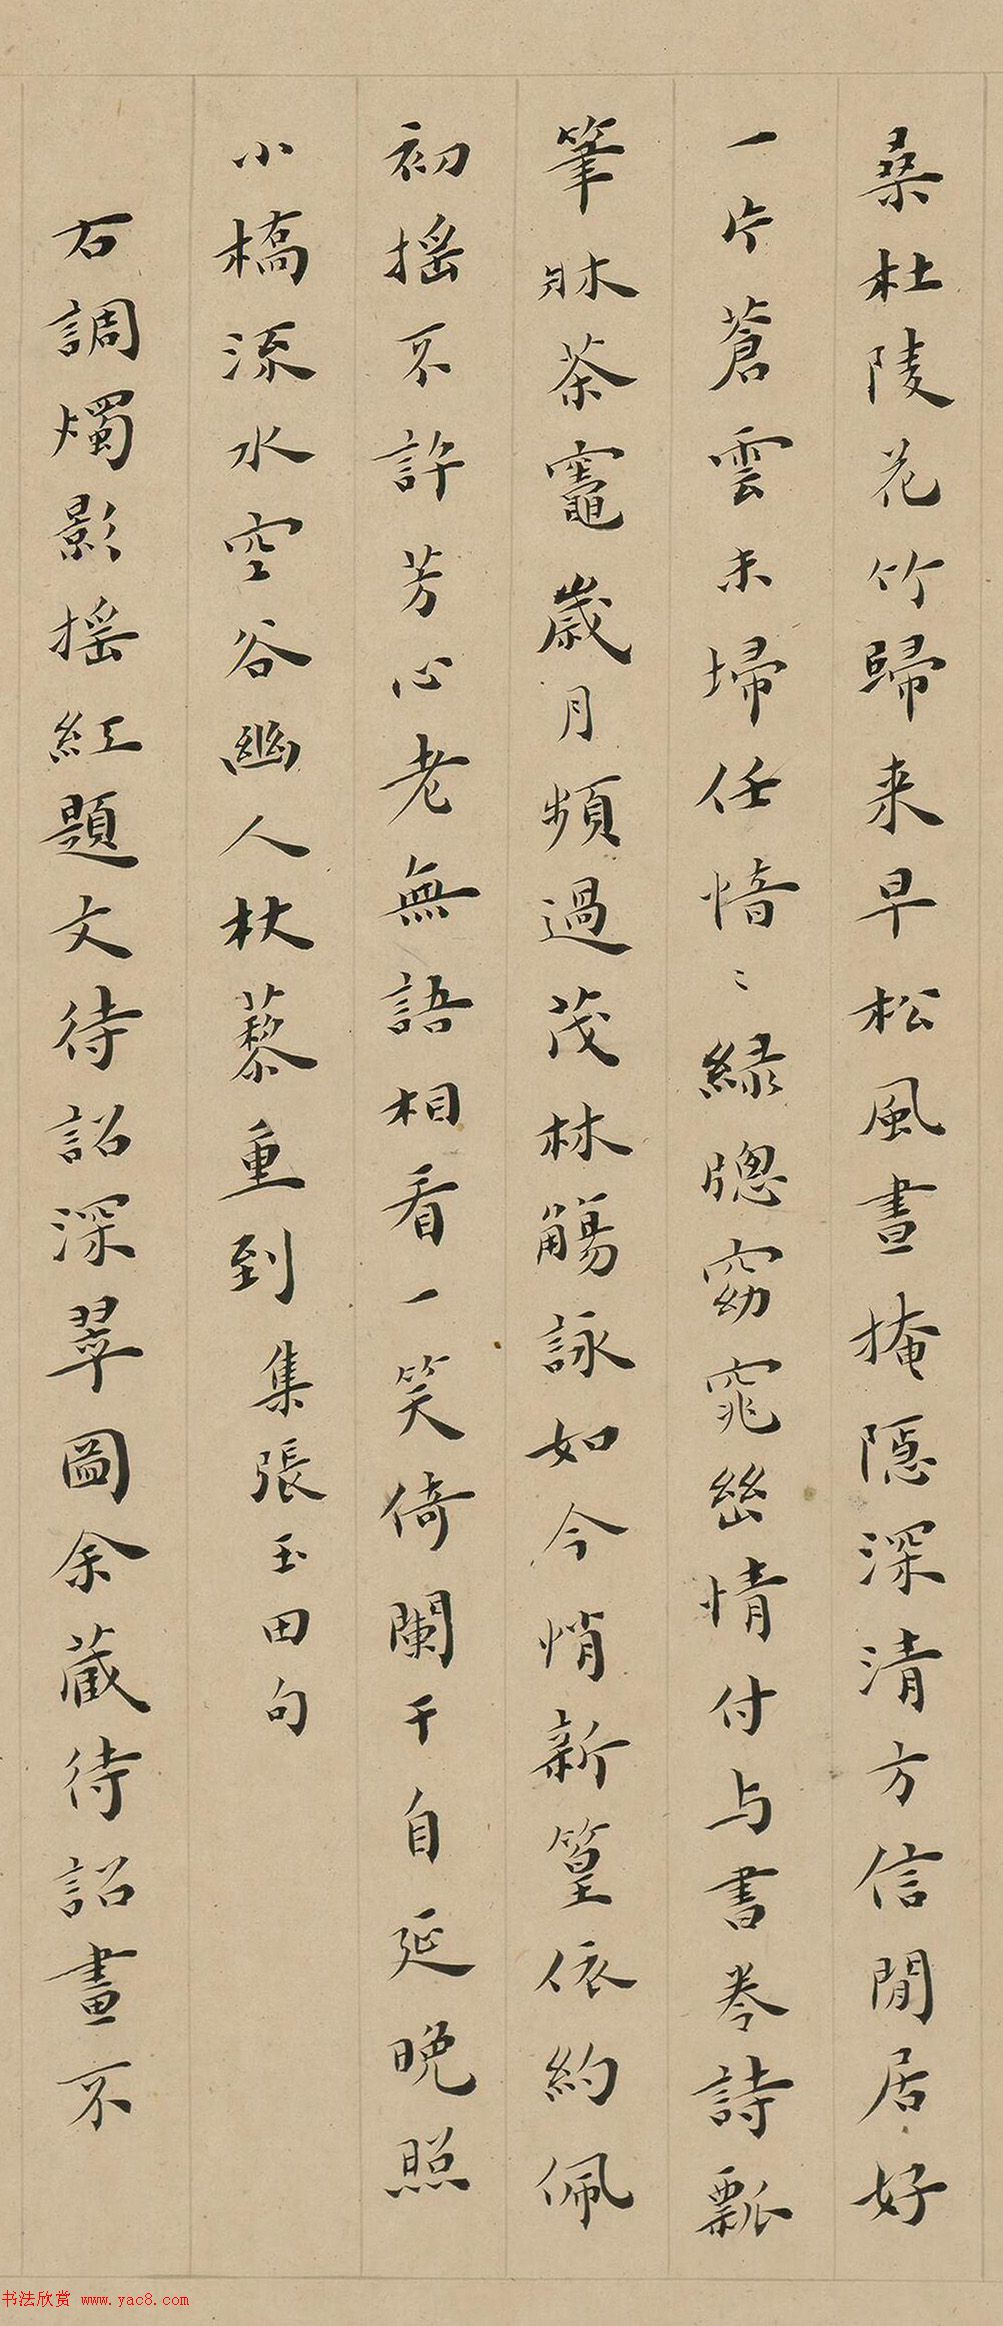 桑杜陵花竹歸来早松風晝掩隱深清方信閒居好
一片蒼雲未埽任愔〻緑牕窈窕幽情付与書卷詩瓢
筆牀茶竈歲月頻過茂林觴詠如今悄新篁依約佩
初摇不許芳心老無語相看一笑倚闌干自延晚照
小橋流水空谷幽人杖藜重到 集張玉田句
右調燭影摇紅題文待詔深翠圖余藏待詔畫不
书法欣赏 www.yac8.com